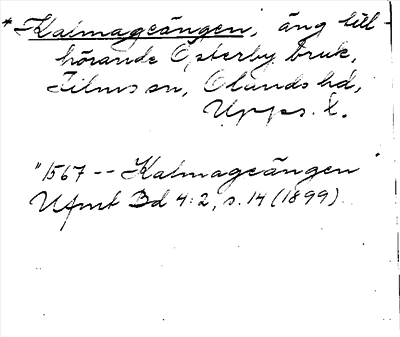 * Kalmageängen, äng till-
hörande Österby bruk,
Films sn, Olands hd,
Upps. l.
"1567 -- Kalmageängen"
Ufmt Bd 4:2, s. 14 (1899)